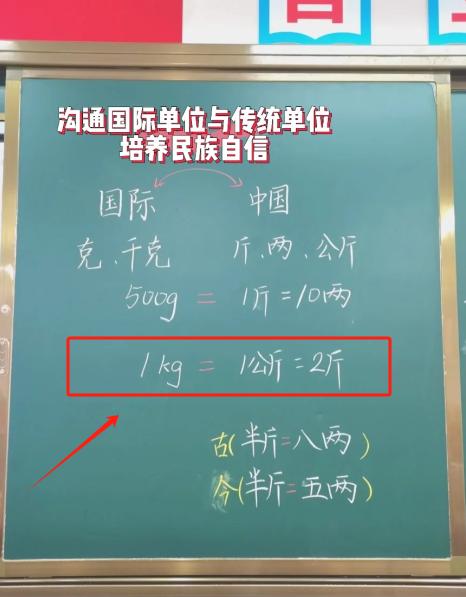 沟通国际单位与传统单位
培养民族自信
国际 中国
克、千克 斤、两、公斤
500g = 1斤=10两
1kg = 1公斤=2斤
古(半斤=八两)
今(半斤=五两)